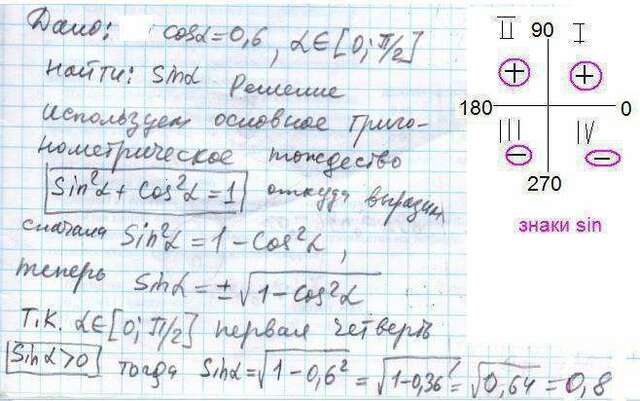 Дано: cosα=0,6, α∈[0; π/2]
Найти: Sinα Решение
используем основное триго-
нометрическое тождество
Sin²α + Cos²α = 1 откуда выразим
сначала Sin²α = 1 - Cos²α,
теперь Sinα = ± √1 - Cos²α
Т.К. α∈[0; π/2] первая четверть
Sinα>0 тогда Sinα = √1 - 0,6² = √1-0,36 = √0,64 = 0,8
II 90 I
+ +
180 0
III IV
- -
270
знаки sin